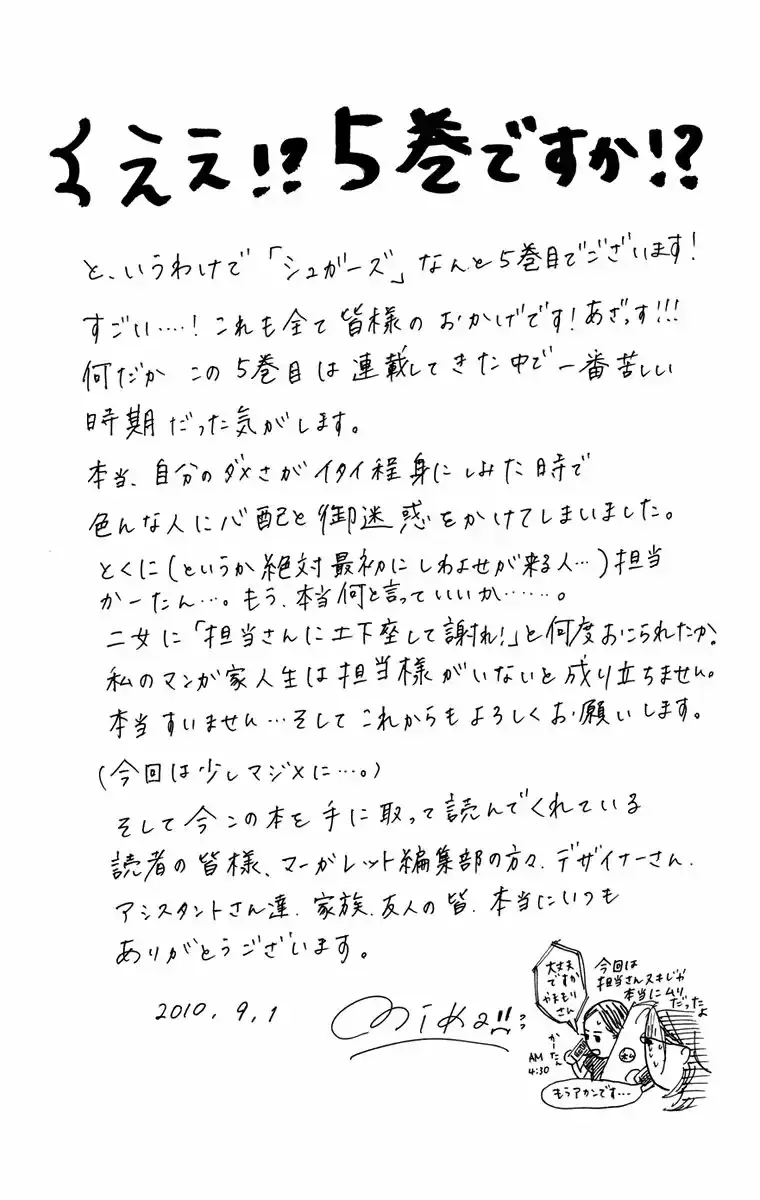 くええ!? 5巻ですか!?
と、いうわけで「シュガーズ」なんと5巻目でございます!
すごい….! これも全て皆様のおかげです! あざっす!!!
何だか この5巻目は連載してきた中で一番苦しい
時期だった気がします。
本当、自分のダメさがイタイ程身にしみた時で
色んな人に心配と御迷惑をかけてしまいました。
とくに(というか絶対最初にしわよせが来る人…)担当
かーたん…。もう、本当何と言っていいか……。
二女に「担当さんに土下座して謝れ!」と何度おこられたか。
私のマンガ家人生は担当様がいないと成り立ちません。
本当すいません…そしてこれからもよろしくお願いします。
(今回は少しマジメに…。)
そして今この本を手に取って読んでくれている
読者の皆様、マーガレット編集部の方々、デザイナーさん、
アシスタントさん達、家族、友人の皆、本当にいつも
ありがとうございます。
2010.9.1
mika!!
大丈夫
ですか
やまもり
さん
今回は
担当さんヌキじゃ
本当にムリ
だったよ
かーたん
AM
4:30
もうアカンです…